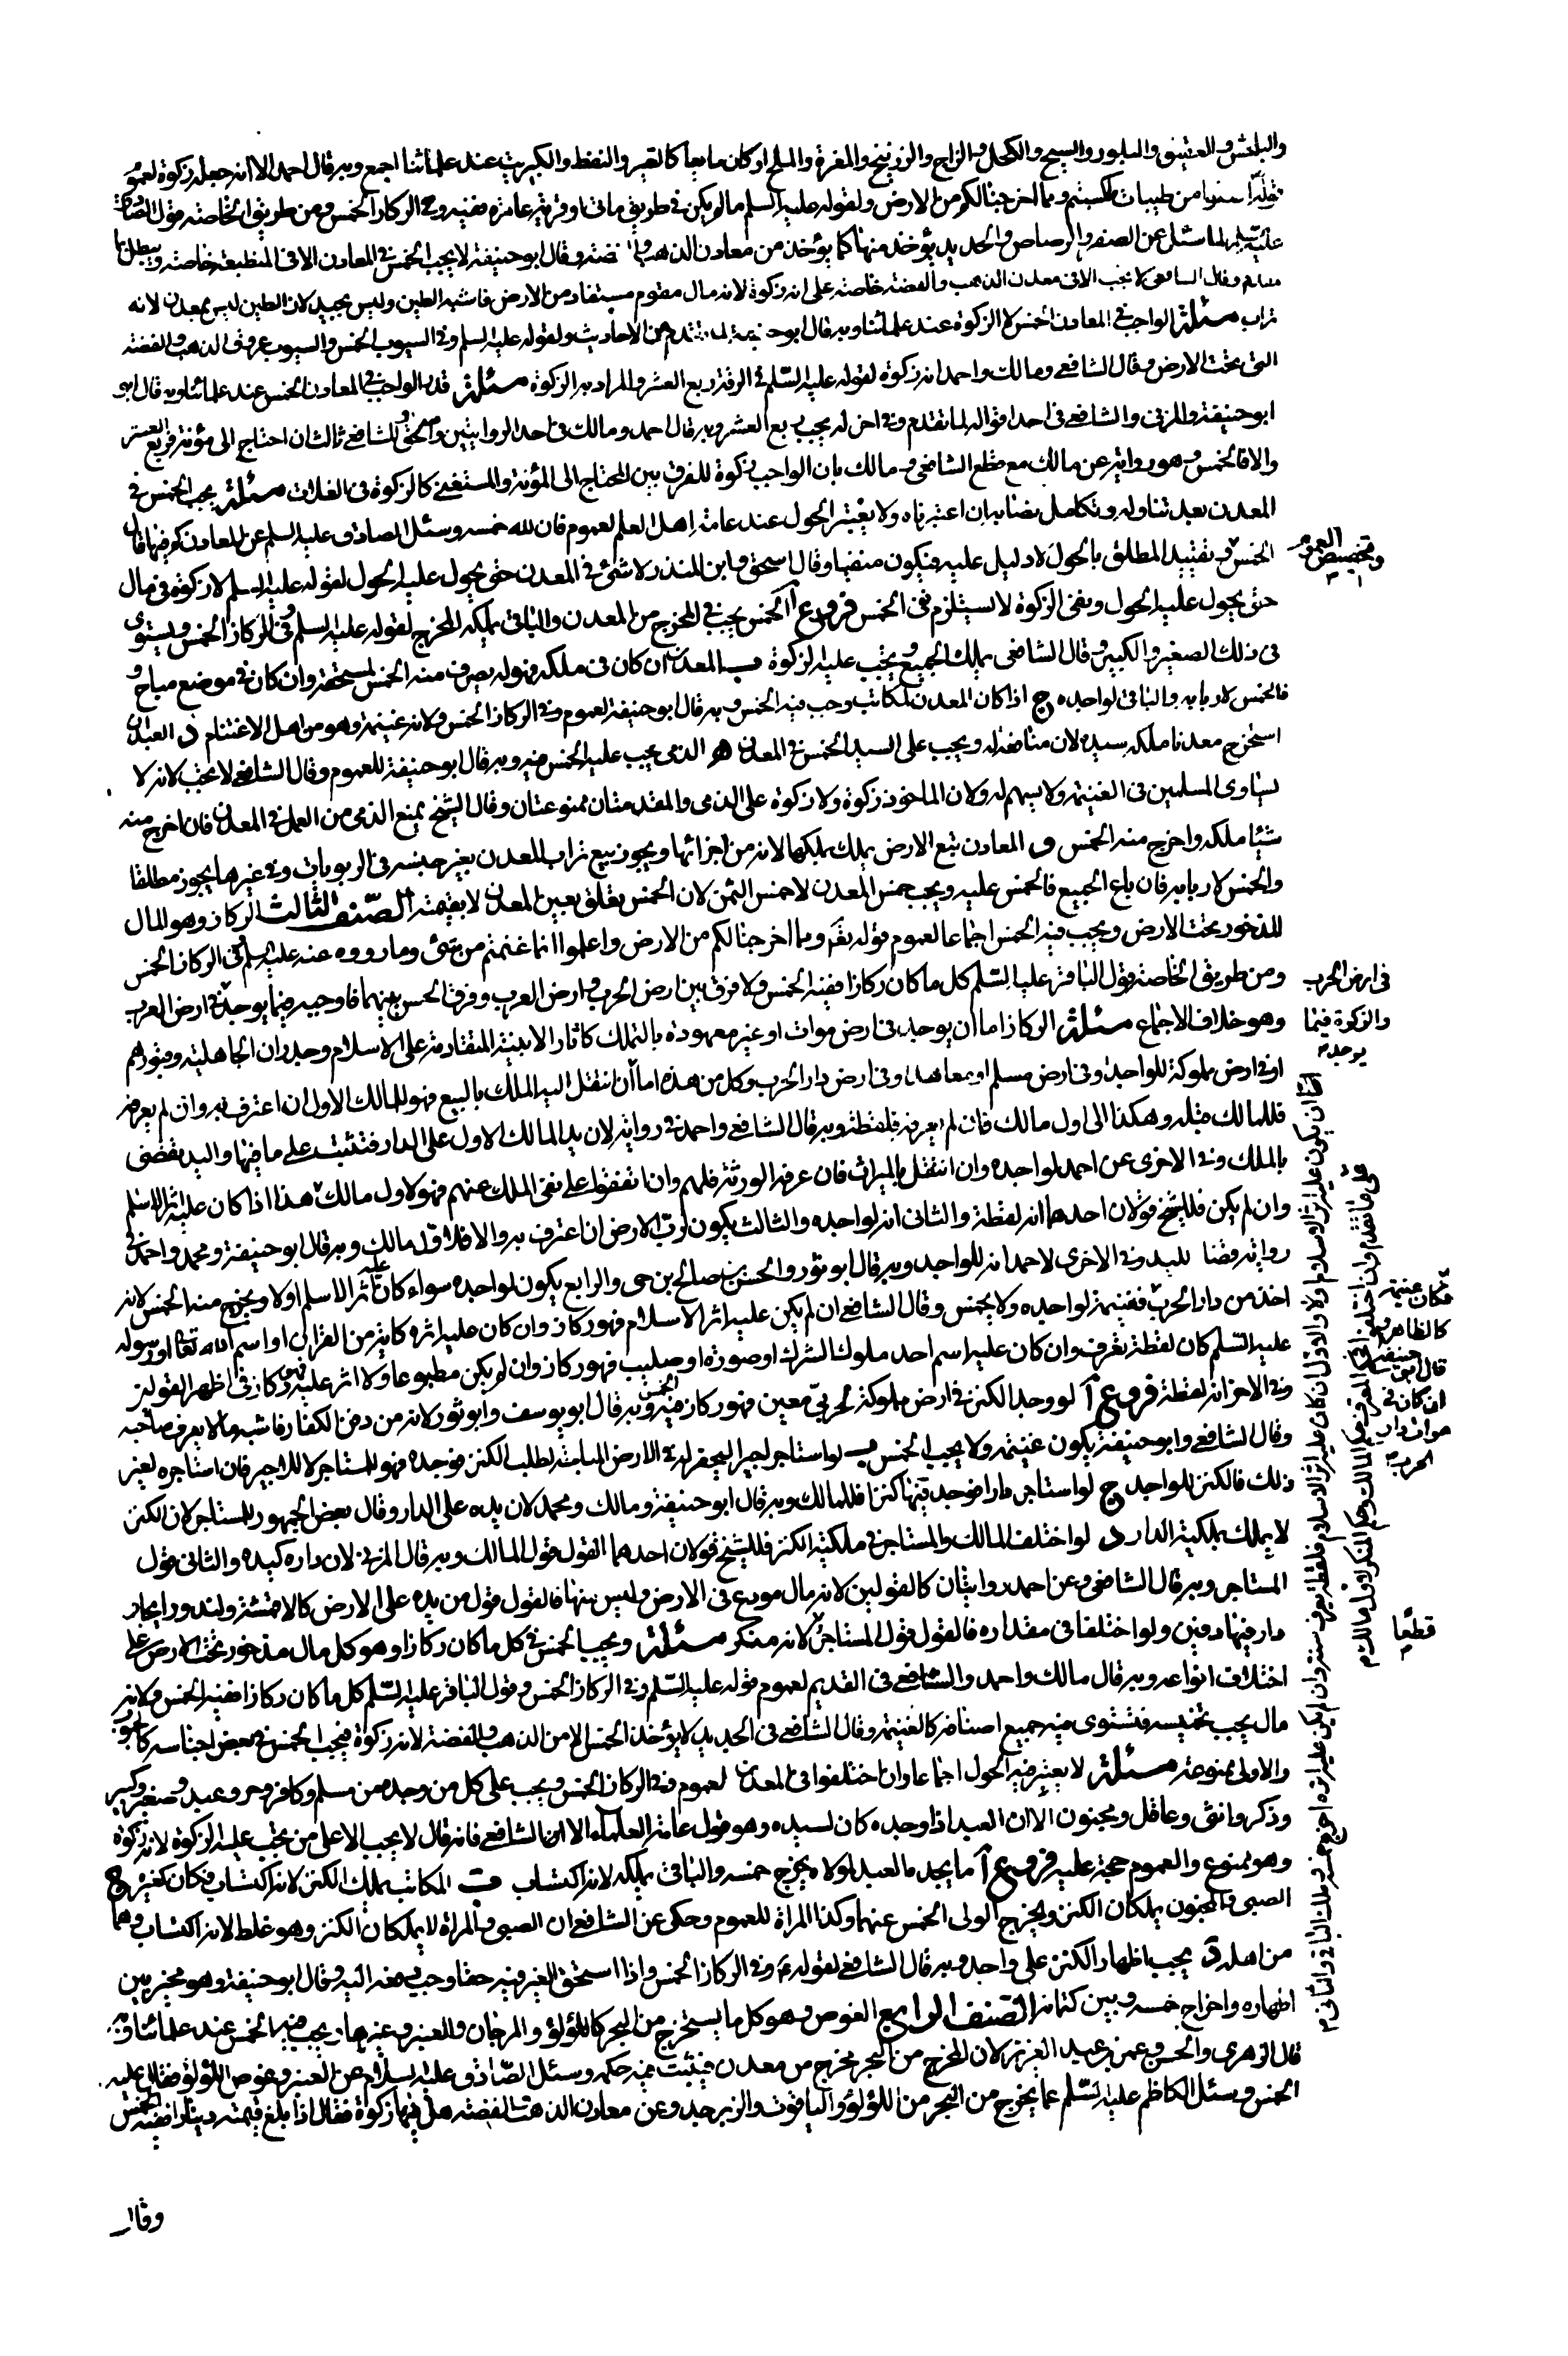 والبلخش والعقيق والبلور والسبج والكحل والزاج والزرنيخ والمغرة والملح او كان مايعا كالقير والنفط والكبريت عند علمائنا اجمع وبه قال احمد الا انه جعله زكوة لعموم
من طيبات ما كسبتم ومما اخرجنا لكم من الارض ولقوله عليه السلم ما لم يكن في طريق ماتى او قرية عامرة ففيه وفي الركاز الخمس ومن طريق الخاصة قول الصادق
عليه لما سئل عن الصفر والرصاص والحديد يؤخذ منها كما يؤخذ من معادن الذهب و فضة وقال ابو حنيفة لا يجب الخمس في المعادن الا في المنطبعة خاصة ويبطل بما
وقال الشافعي لا يجب الا في معدن الذهب والفضة خاصة على انه زكوة لانه مال مقوم مستفاد من الارض فاشبه الطين وليس بجيد لان الطين ليس بمعدن لانه
تراب مسئلة الواجب في المعادن الخمس لا الزكوة عند علمائنا وبه قال ابو حنيفة لما تقدم من الاحاديث ولقوله عليه السلم وفي السيوب الخمس والسيوب عروق الذهب والفضة
التي تحت الارض وقال الشافعي ومالك واحمد انه زكوة لقوله عليه السلم في الرقة ربع العشر والمراد به الزكوة مسئلة قدر الواجب في المعادن الخمس عند علمائنا وبه قال ابو
ابو حنيفة والمزني والشافعي في احد اقواله لما تقدم وفي اخر له يجب ربع العشر وبه قال احمد ومالك في احد الروايتين واسحق وللشافعي ثالث ان احتاج الى مؤنة فربع العشر
والا فالخمس وهو رواية عن مالك مع قطع الشافعي ومالك بان الواجب زكوة للفرق بين المحتاج الى المؤنة والمستغني كالزكوة في الغلات مسئلة يجب الخمس في
المعدن بعد تناوله وتكامل نصابه ان اعتبرناه ولا يعتبر الحول عند عامة اهل العلم لعموم فان لله خمسه وسئل الصادق عليه السلم عن المعادن كم فيها قال
الخمس وتقييد المطلق بالحول لا دليل عليه فيكون منفيا وقال اسحق وابن المنذر لا شئ في المعدن حتى يحول عليه الحول لقوله عليه السلم لا زكوة في مال
وتخصيص العموم
حتى يحول عليه الحول ونفي الزكوة لا يستلزم نفي الخمس فروع آ الخمس يجب في المخرج من المعدن والباقي يملكه المخرج لقوله عليه السلم وفي الركاز الخمس ويستوى
في ذلك الصغير والكبير وقال الشافعي يملك الجميع ويجب عليه الزكوة ب المعدن ان كان في ملكه فهو له يصرف منه الخمس لمستحقه وان كان في موضع مباح
فالخمس لاربابه والباقي لواجده ج اذا كان المعدن لمكاتب وجب فيه الخمس وبه قال ابو حنيفة لعموم وفي الركاز الخمس ولانه غنيمة وهو من اهل الاغتنام د العبد ان
استخرج معدنا ملكه سيده لان منافعه له ويجب على السيد الخمس في المعدن ه الذمى يجب عليه الخمس فيه وبه قال ابو حنيفة للعموم وقال الشافعي لا يجب لانه لا
يساوى المسلمين في الغنيمة ولا يسهم له ولان الماخوذ زكوة ولا زكوة على الذمى والمقدمتان ممنوعتان وقال الشيخ يمنع الذمى من العمل في المعدن فان اخرج منه
شيئا ملكه واخرج منه الخمس و المعادن تتبع الارض يملك بملكها لانه من اجزائها ويجوز بيع تراب المعدن بغير جنسه في الربويات وفي غيرها يجوز مطلقا
والخمس لاربابه فان باع الجميع فالخمس عليه ويجب خمس المعدن لا خمس الثمن لان الخمس يتعلق بعين المعدن لا بقيمته الصنف الثالث الركاز وهو المال
المذخور تحت الارض ويجب فيه الخمس اجماعا لعموم قوله تعم ومما اخرجنا لكم من الارض واعلموا انما غنمتم من شئ وما رووه عنه عليه السلم وفي الركاز الخمس
ومن طريق الخاصة قول الباقر عليه السلم كل ما كان ركازا ففيه الخمس ولا فرق بين ارض الحرب وارض العرب وفرق الحسن بينهما فاوجبه فيما يوجد في ارض العرب
في ارض الحرب والزكوة فيما يوجد
وهو خلاف الاجماع مسئلة الركاز اما ان يوجد في ارض موات او غير معهودة بالتملك كاثار الابنية المتقادمة على الاسلام وجدران الجاهلية وقبورهم
او في ارض مملوكة للواجد او في ارض مسلم او معاهد او في ارض دار الحرب وكل من هذه اما ان انتقل اليه الملك بالبيع فهو للمالك الاول ان اعترف به وان لم يعرفه
فللمالك قبله وهكذا الى اول مالك فان لم يعرفه فلقطة وبه قال الشافعي واحمد في رواية لان يد المالك الاول على الدار فتثبت على ما فيها واليد تقضي
بالملك وفي الاخرى عن احمد لواجده وان انتقل بالميراث فان عرفه الورثة فلهم وان اتفقوا على نفي الملك عنهم فهو لاول مالك هذا اذا كان عليه اثر الاسلم
وان لم يكن فللشيخ قولان احدهما انه لقطة والثاني انه لواجده والثالث يكون لرب الارض ان اعترف به والا فلاول مالك وبه قال ابو حنيفة ومحمد واحمد في
رواية قضاء لليد وفي الاخرى لاحمد انه للواجد وبه قال ابو ثور والحسن بن صالح بن حى والرابع يكون لواجده سواء كان عليه اثر الاسلم اولا ويخرج منه الخمس لانه
اخذ من دار الحرب ففنيمة لواجده ولا يخمس وقال الشافعي ان لم يكن عليه اثر الاسلام فهو ركاز وان كان عليه اثره كاية من القران او اسم الله تعالى او رسوله
فكان غنيمة كالظاهر وبه قال ابو حنيفة ان كان في موات دار الحرب
عليه السلم كان لقطة يعرف وان كان عليه اسم احد ملوك الشرك او صورة او صليب فهو ركاز وان لم يكن مطبوعا ولا اثر عليه فهو ركاز في اظهر القولين
وفي الاخر انه لقطة فروع آ لو وجد الكنز في ارض مملوكة لحربي معين فهو ركاز فيه الخمس وبه قال ابو يوسف وابو ثور لانه من دفن الكفار فاشبه ما لا يعرف صاحبه
وقال الشافعي وابو حنيفة يكون غنيمة ولا يجب الخمس ب لو استاجر اجيرا ليحفر له في الارض المباحة لطلب الكنز فوجده فهو للمستاجر لا للاجير فان استاجره لغير
ذلك فالكنز للواجد ج لو استاجر دارا فوجد فيها كنزا فللمالك وبه قال ابو حنيفة ومالك ومحمد لان يده على الدار وقال بعض الجمهور للمستاجر لان الكنز
لا يملك بملكية الدار د لو اختلف المالك والمستاجر في ملكية الكنز فللشيخ قولان احدهما القول قول المالك وبه قال المزني لان داره كيده والثاني قول
المستاجر وبه قال الشافعي وعن احمد روايتان كالقولين لانه مال مودع في الارض وليس منها فالقول قول من يده على الارض كالاقمشة ولندور ايجار
دار فيها دفين ولو اختلفا في مقداره فالقول قول المستاجر لانه منكر مسئلة ويجب الخمس في كل ما كان ركازا وهو كل مال مذخور تحت الارض على
قطعا
اختلاف انواعه وبه قال مالك واحمد والشافعي في القديم لعموم قوله عليه السلم وفي الركاز الخمس وقول الباقر عليه السلم كل ما كان ركازا ففيه الخمس ولانه
مال يجب تخميسه فتستوى فيه جميع اصنافه كالغنيمة وقال الشافعي في الجديد لا يؤخذ الخمس الا من الذهب والفضة لانه زكوة فيجب الخمس في بعض اجناسه كالحبوب
والاولى ممنوعة مسئلة لا يعتبر فيه الحول اجماعا وان اختلفوا في المعدن لعموم وفي الركاز الخمس ويجب على كل من وجده من مسلم وكافر وحر وعبد وصغير وكبير
وذكر وانثى وعاقل ومجنون الا ان العبد اذا وجده كان لسيده وهو قول عامة العلماء الا الشافعي فانه قال لا يجب الا على من تجب عليه الزكوة لانه زكوة
وهو ممنوع والعموم حجة عليه فروع آ ما يجده العبد لمولاه يخرج خمسه والباقي يملكه لانه اكتساب ب المكاتب يملك الكنز لانه اكتساب فكان كغيره ج
الصبى والمجنون يملكان الكنز ويخرج الولى الخمس عنهما وكذا المراة للعموم وحكى عن الشافعي ان الصبى والمراة لا يملكان الكنز وهو غلط لانه اكتساب وهما
من اهله د يجب اظهار الكنز على واجده وبه قال الشافعي لقوله ع وفي الركاز الخمس واذا استحق الغير فيه حقا وجب دفعه اليه وقال ابو حنيفة وهو مخير بين
اظهاره واخراج خمسه وبين كتمانه الصنف الرابع الغوص وهو كل ما يستخرج من البحر كاللؤلؤ والمرجان والعنبر وغيرها ويجب فيه الخمس عند علمائنا وبه
قال الزهرى والحسن وعمر بن عبد العزيز لان المخرج من البحر مخرج من معدن فيثبت فيه حكمه وسئل الصادق عليه السلام عن العنبر وغوص اللؤلؤ فقال عليه
الخمس وسئل الكاظم عليه السلم عما يخرج من البحر من اللؤلؤ والياقوت والزبرجد وعن معادن الذهب والفضة هل فيها زكوة فقال اذا بلغ قيمته دينارا ففيه الخمس
وقال